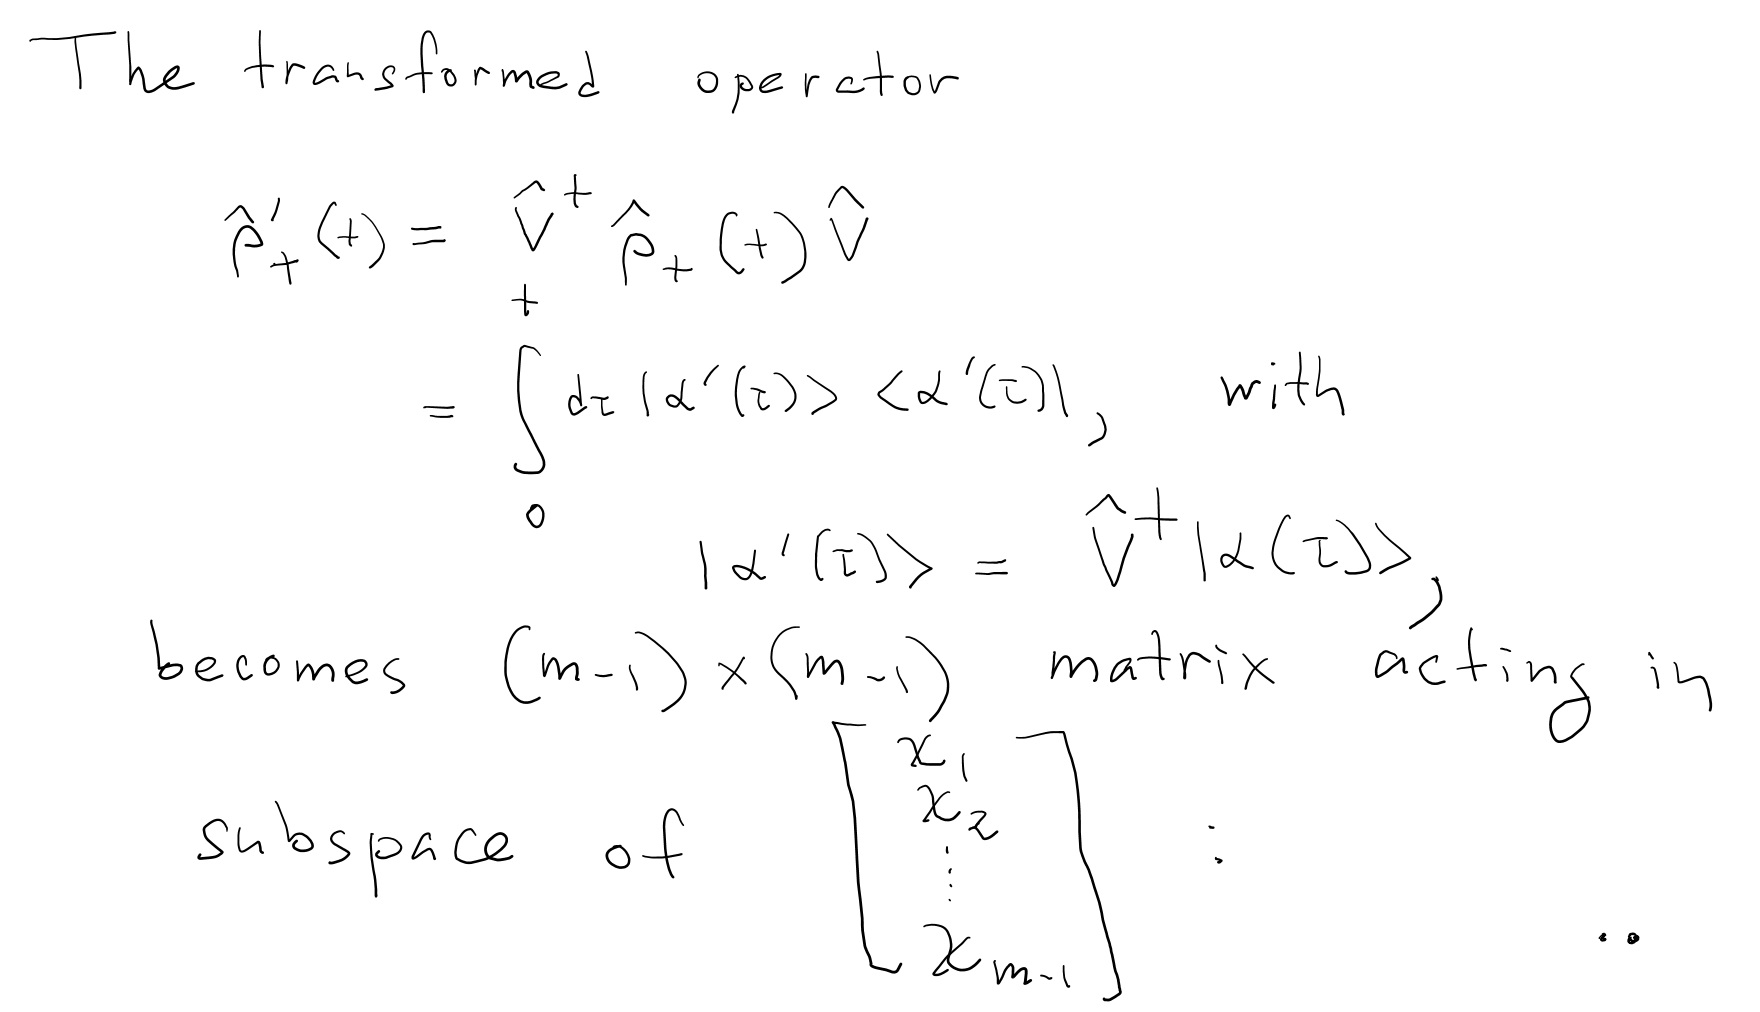 The transformed operator
ρ̂'₊(t) = V̂⁺ ρ̂₊(t) V̂
= ∫₀ᵗ dτ |α'(τ)> <α'(τ)|, with
|α'(τ)> = V̂⁺ |α(τ)>,
becomes (m-1) × (m-1) matrix acting in
subspace of [x₁ x₂ ⋮ xₘ₋₁] :
..